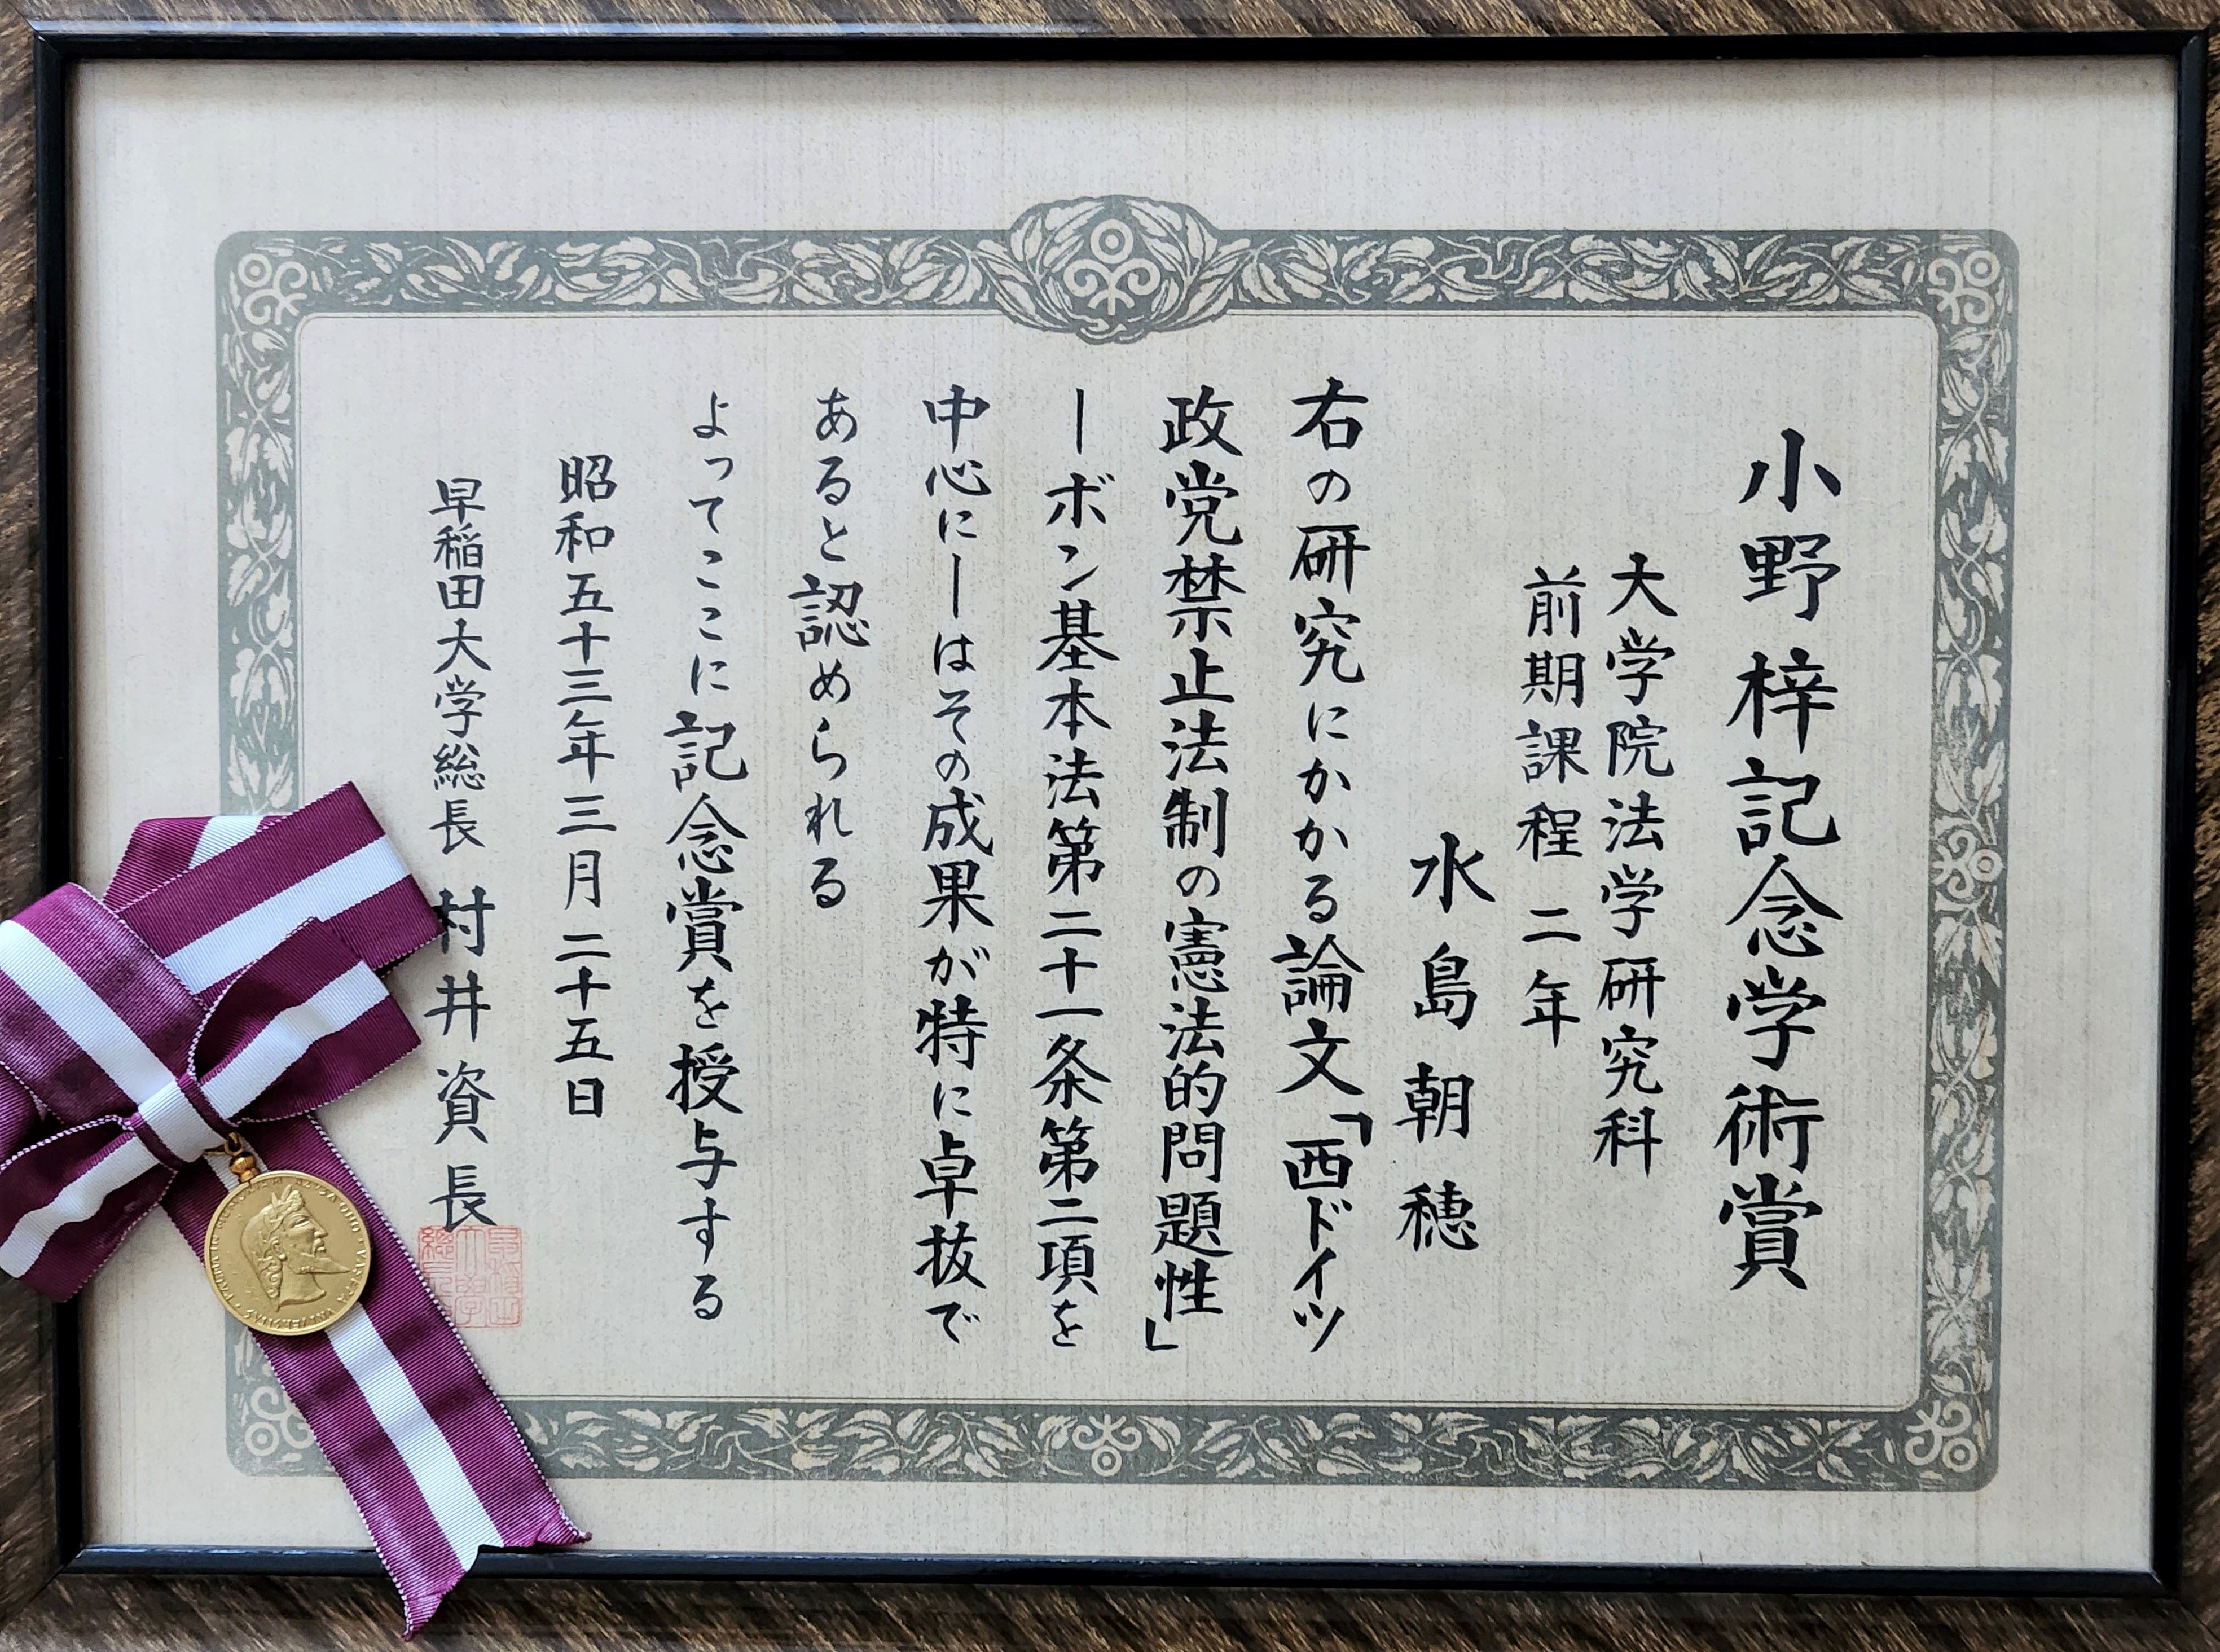 小野梓記念学術賞
大学院法学研究科
前期課程二年
水島朝穂
右の研究にかかる論文「西ドイツ
政党禁止法制の憲法的問題性」
―ボン基本法第二十一条第二項を
中心に―はその成果が特に卓抜で
あると認められる
よってここに記念賞を授与する
昭和五十三年三月二十五日
早稲田大学総長 村井資長